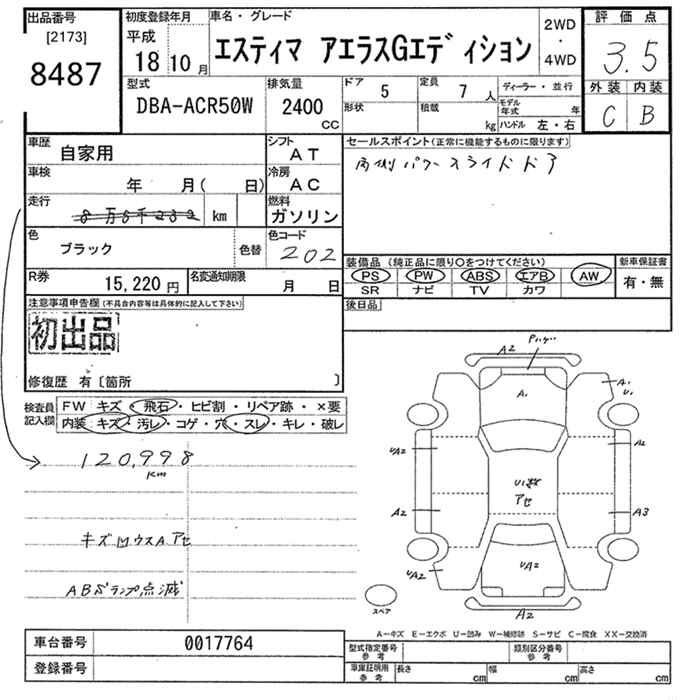 出品番号 初度登録年月 車名・グレード 2WD・4WD 評価点
[2173] 平成
8487 18 10月 エスティマ アエラスGエディション 3.5
外装 内装
C B
型式 排気量 ドア 5 定員 7人 ディーラー・並行
DBA-ACR50W 2400cc 形状 積載 kg モデル年式 年
ハンドル 左・右
車歴 自家用 シフト AT
セールスポイント(正常に機能するものに限ります)
両側パワースライドドア
車検 年 月( 日) 冷房 AC
走行 km 燃料 ガソリン
色 ブラック 色替 色コード 202
装備品(純正品に限り○をつけてください) 新車保証書
PS PW ABS エアB AW 有・無
SR ナビ TV カワ
R券 15,220円 名変通知期限 月 日
後日品
注意事項申告欄(不具合内容等は具体的に記入して下さい)
初出品
修復歴 有〔箇所 〕
検査員記入欄 FW キズ・飛石・ヒビ割・リペア跡・×要
内装 キズ・汚レ・コゲ・穴・スレ・キレ・破レ
120,998
km
キズ凹ウスAアセ
ABSランプ点滅
A2
A.
A.
U.
UA2
A2
アセ
A2
A3
UA2
UA2
A2
スペア
A-キズ E-エクボ U-凹み W-補修跡 S-サビ C-腐食 XX-交換済
車台番号 0017764
登録番号
型式指定番号 参考 類別区分番号 参考
車庫証明用 参考 長さ cm 幅 cm 高さ cm